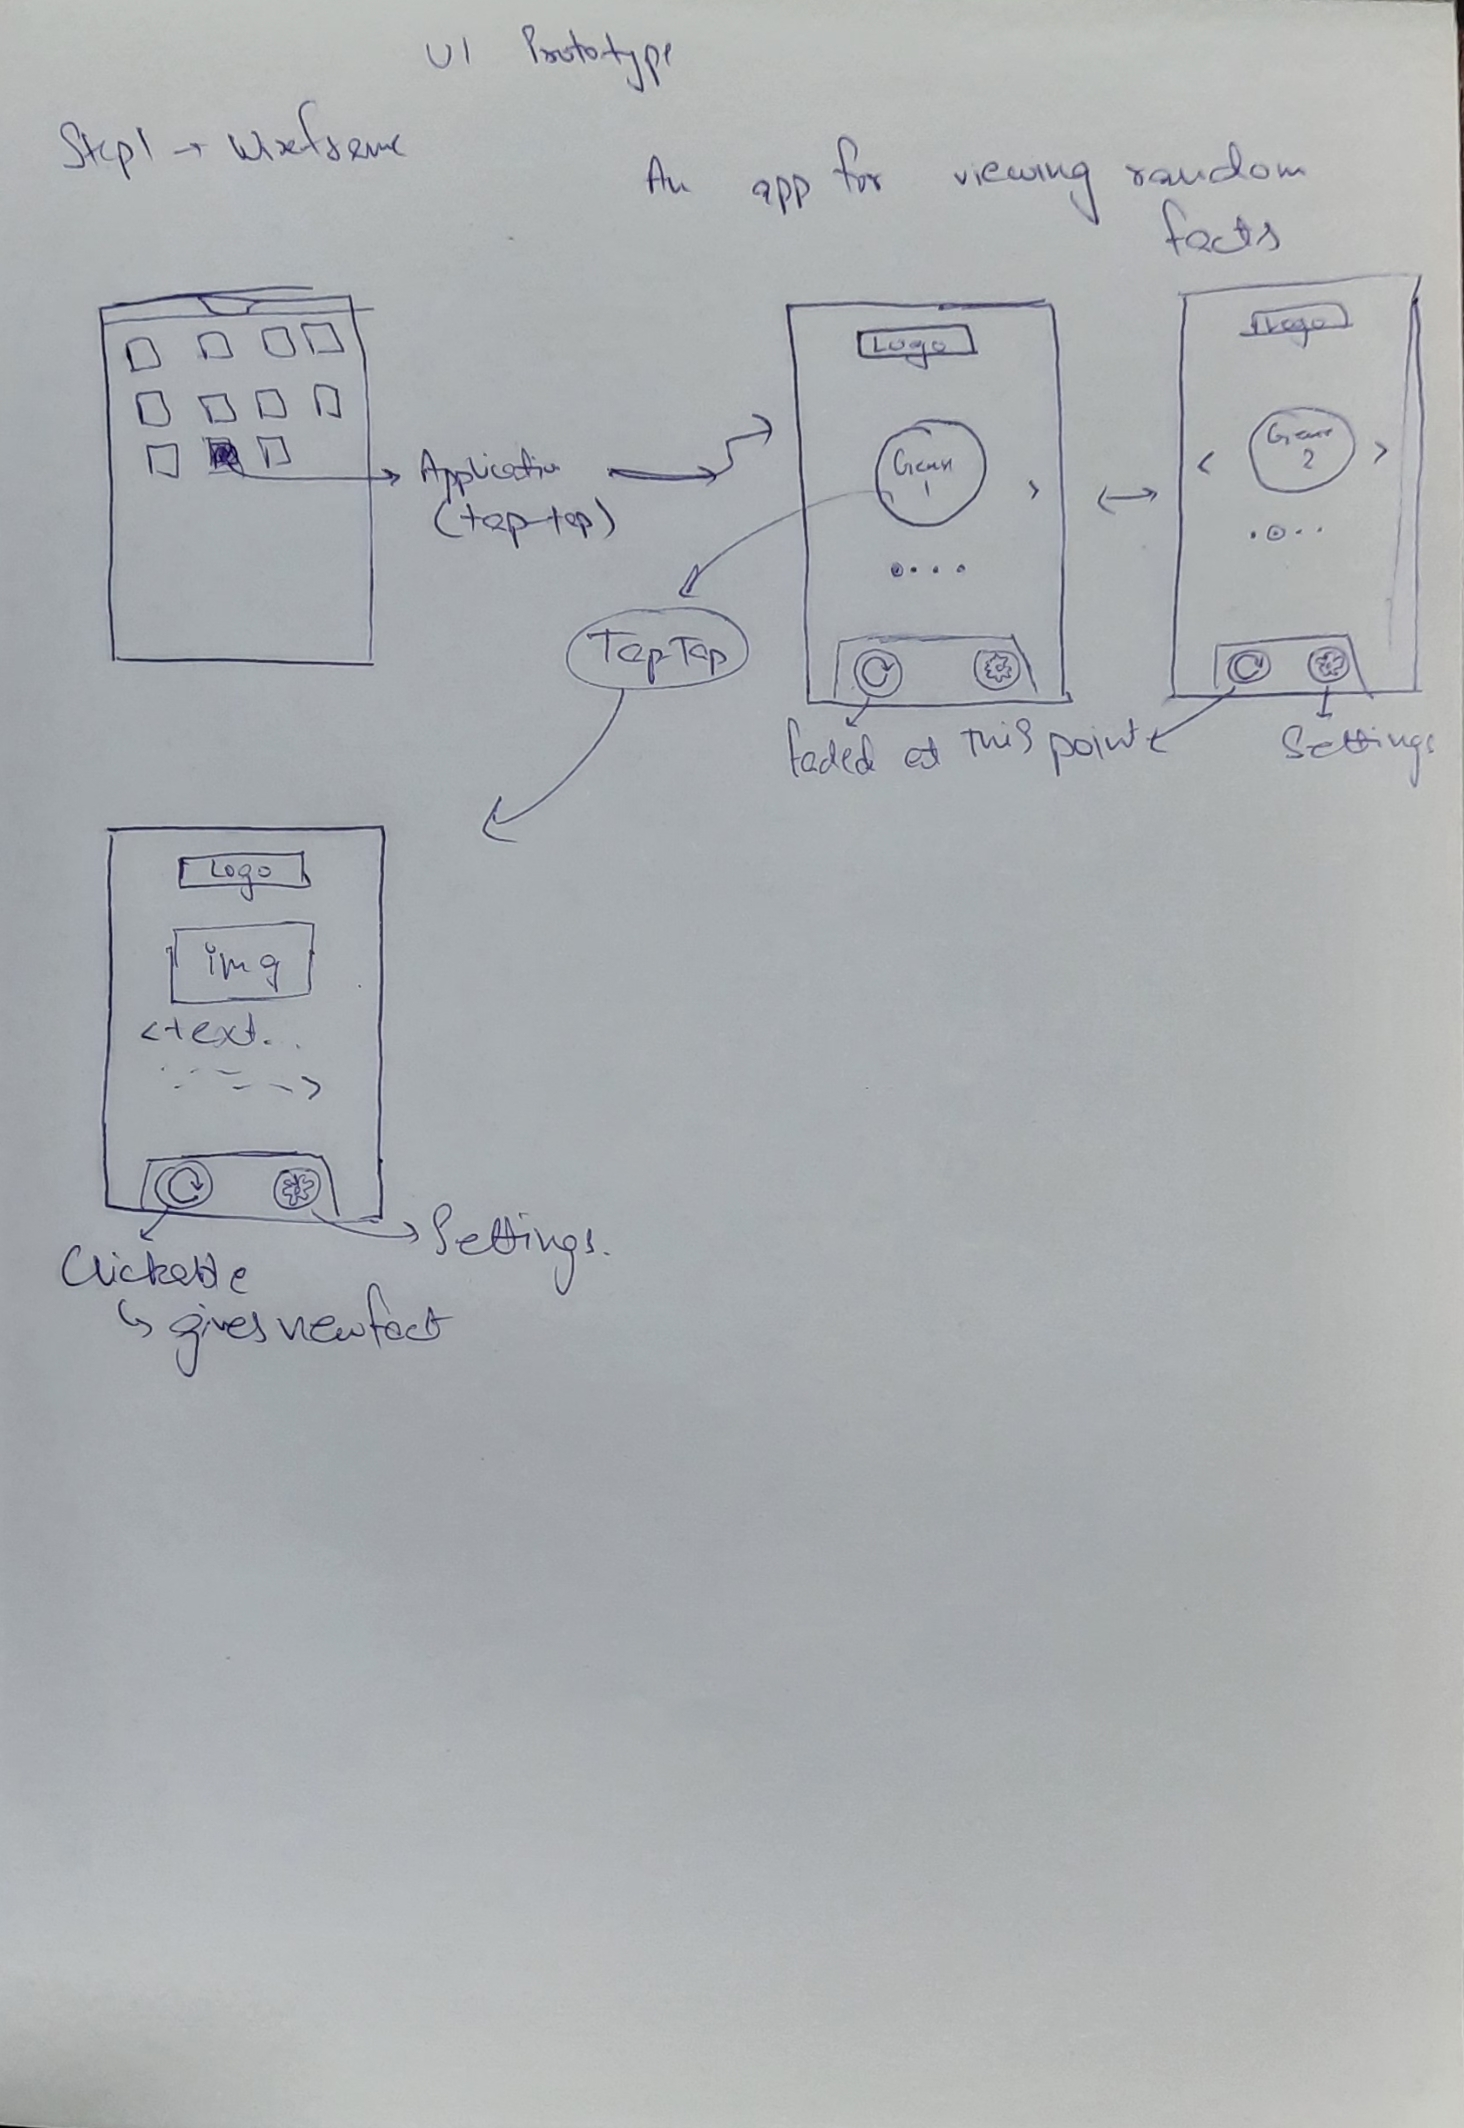 UI Prototype
Step1 → Wireframe
An app for viewing random
facts
Application
(tap-tap)
Logo
Genre
1
>
Logo
<
Genre
2
>
Tap Tap
faded at this point
Settings
Logo
img
<text...
>
Settings.
Clickable
↳ gives new fact